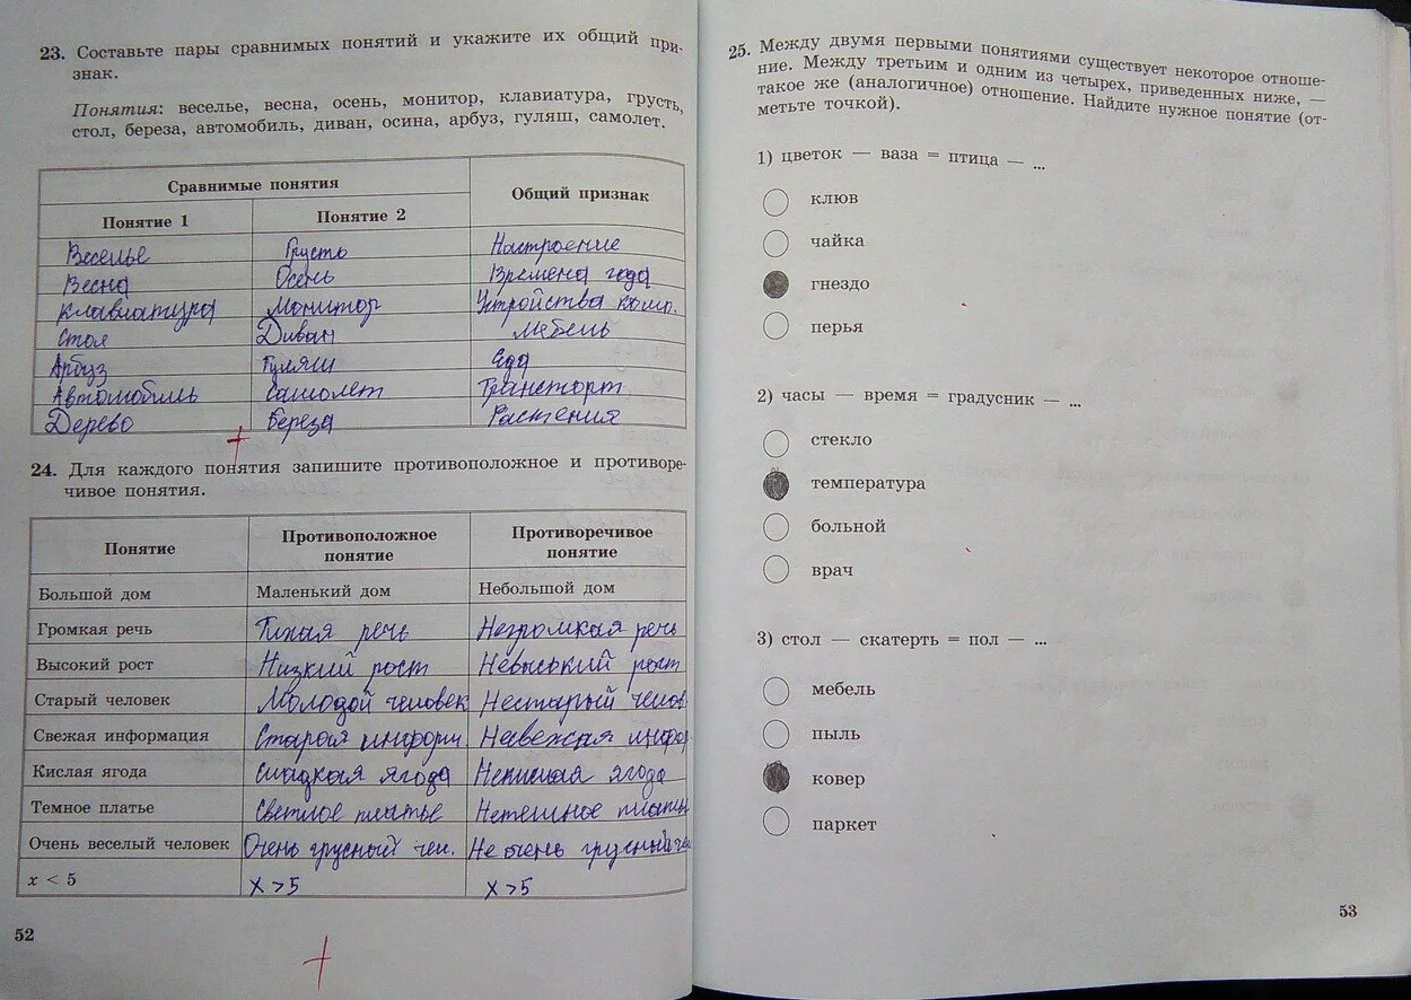 23. Составьте пары сравнимых понятий и укажите их общий при-
знак.
Понятия: веселье, весна, осень, монитор, клавиатура, грусть,
стол, береза, автомобиль, диван, осина, арбуз, гуляш, самолет.
Сравнимые понятия
Общий признак
Понятие 1 Понятие 2
Веселье Грусть Настроение
Весна Осень Времена года
Клавиатура Монитор Устройства комп.
Стол Диван Мебель
Арбуз Гуляш Еда
Автомобиль Самолет Транспорт
Дерево Береза Растения
24. Для каждого понятия запишите противоположное и противоре-
чивое понятия.
Понятие Противоположное понятие Противоречивое понятие
Большой дом Маленький дом Небольшой дом
Громкая речь Тихая речь Негромкая речь
Высокий рост Низкий рост Невысокий рост
Старый человек Молодой человек Нестарый челов
Свежая информация Старая информ. Несвежая инфор
Кислая ягода Сладкая ягода Некислая ягода
Темное платье Светлое платье Нетемное платье
Очень веселый человек Очень грустный чел. Не очень грустный че
x < 5 x > 5 x > 5
52
25. Между двумя первыми понятиями существует некоторое отноше-
ние. Между третьим и одним из четырех, приведенных ниже, —
такое же (аналогичное) отношение. Найдите нужное понятие (от-
метьте точкой).
1) цветок — ваза = птица — ...
клюв
чайка
гнездо
перья
2) часы — время = градусник — ...
стекло
температура
больной
врач
3) стол — скатерть = пол — ...
мебель
пыль
ковер
паркет
53